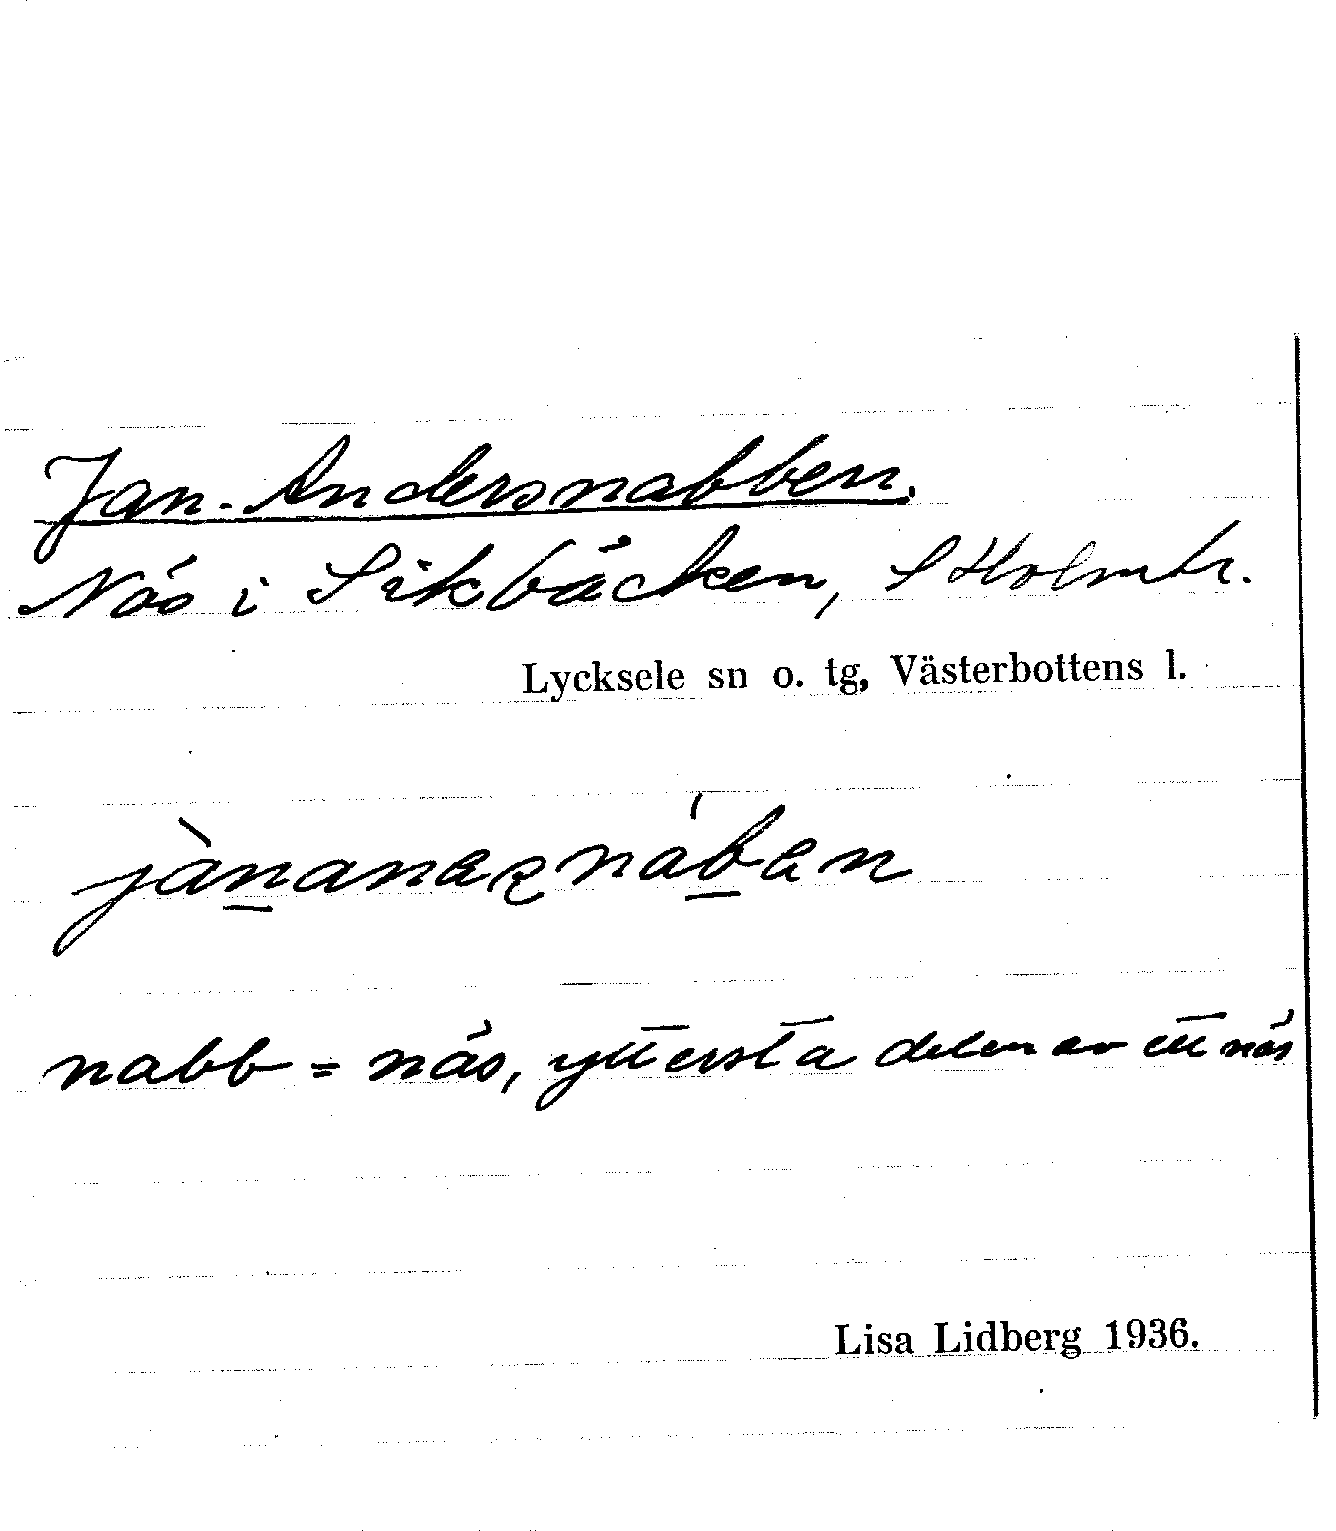 Jan-Andersnabben.
Näs i Sikbäcken, S Holmtr.
Lycksele sn o. tg, Västerbottens l.
nabb = näs, yttersta delen av ett näs
Lisa Lidberg 1936.